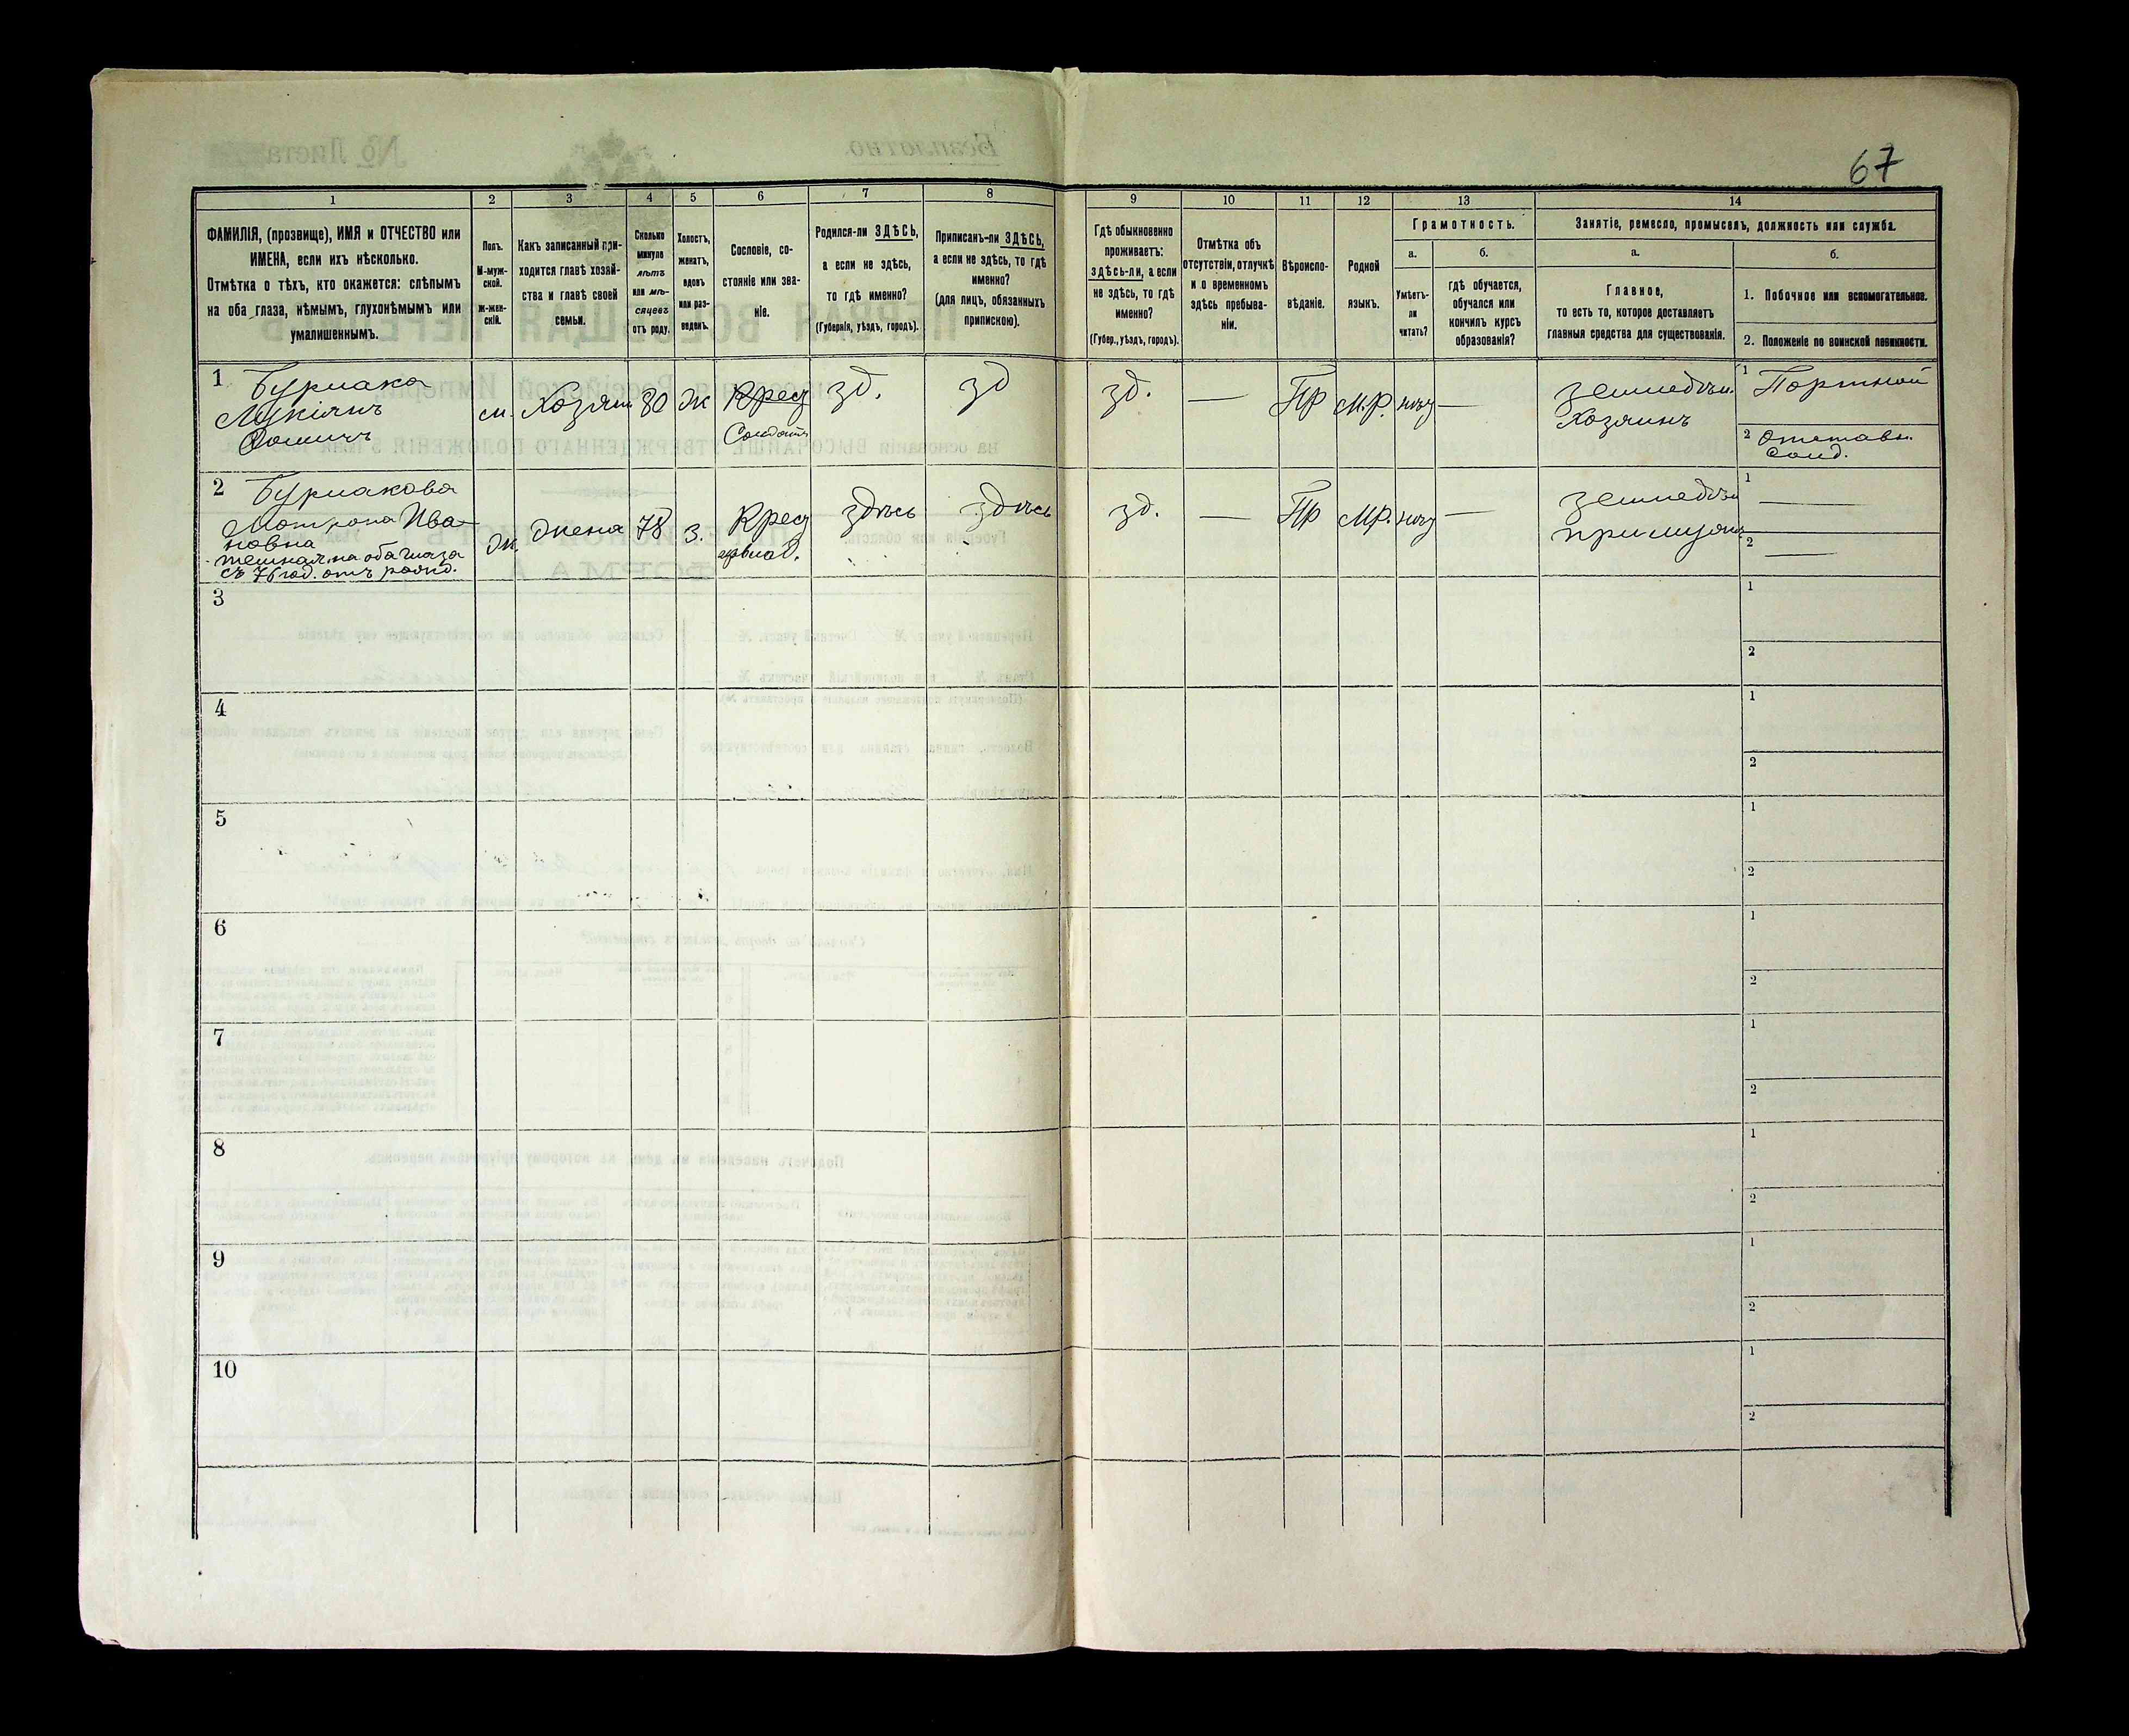 67
1 2 3 4 5 6 7 8 9 10 11 12 13 14
ФАМИЛІЯ, (прозвище), ИМЯ и ОТЧЕСТВО или
ИМЕНА, если ихъ нѣсколько.
Отмѣтка о тѣхъ, кто окажется: слѣпымъ
на оба глаза, нѣмымъ, глухонѣмымъ или
умалишеннымъ.
Полъ.
М-муж-
ской.
Ж-жен-
скій.
Какъ записанный при-
ходится главѣ хозяй-
ства и главѣ своей
семьи.
Сколько
минуло
лѣтъ
или мѣ-
сяцевъ
отъ роду.
Холостъ,
женатъ,
вдовъ
или раз-
веденъ.
Сословіе, со-
стояніе или зва-
ніе.
Родился-ли ЗДѢСЬ,
а если не здѣсь,
то гдѣ именно?
(Губернія, уѣздъ, городъ).
Приписанъ-ли ЗДѢСЬ,
а если не здѣсь, то гдѣ
именно?
(для лицъ, обязанныхъ
припискою).
Гдѣ обыкновенно
проживаетъ:
здѣсь-ли, а если
не здѣсь, то гдѣ
именно?
(Губер., уѣздъ, городъ).
Отмѣтка объ
отсутствіи, отлучкѣ
и о временномъ
здѣсь пребыва-
ніи.
Вѣроиспо-
вѣданіе.
Родной
языкъ.
Грамотность.
а.
Умѣетъ-
ли
читать?
б.
гдѣ обучается,
обучался или
кончилъ курсъ
образованія?
Занятіе, ремесло, промыселъ, должность или служба.
а.
Главное,
то есть то, которое доставляетъ
главныя средства для существованія.
б.
1. Побочное или вспомогательное.
2. Положеніе по воинской повинности.
1 Бурлака
Лукіянъ
Фомичъ
м. Хозяин 80 Ж Крес
Солдатъ
зд. зд зд. — Пр М.Р. —
землед.
Хозяинъ
1 Портной
2 Отставн.
Солд.
2 Бурлакова
Матрона Ива-
новна
темная на оба глаза
съ 76 год. отъ рожд.
Ж. Жена 78 З. Крес
здѣсь здѣсь зд. — Пр МР. —
землед.
1 —
2 —
3 1
2
4 1
2
5 1
2
6 1
2
7 1
2
8 1
2
9 1
2
10 1
2